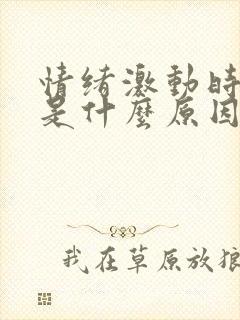 情緒激動時
是什麼原因
我在草原放狼